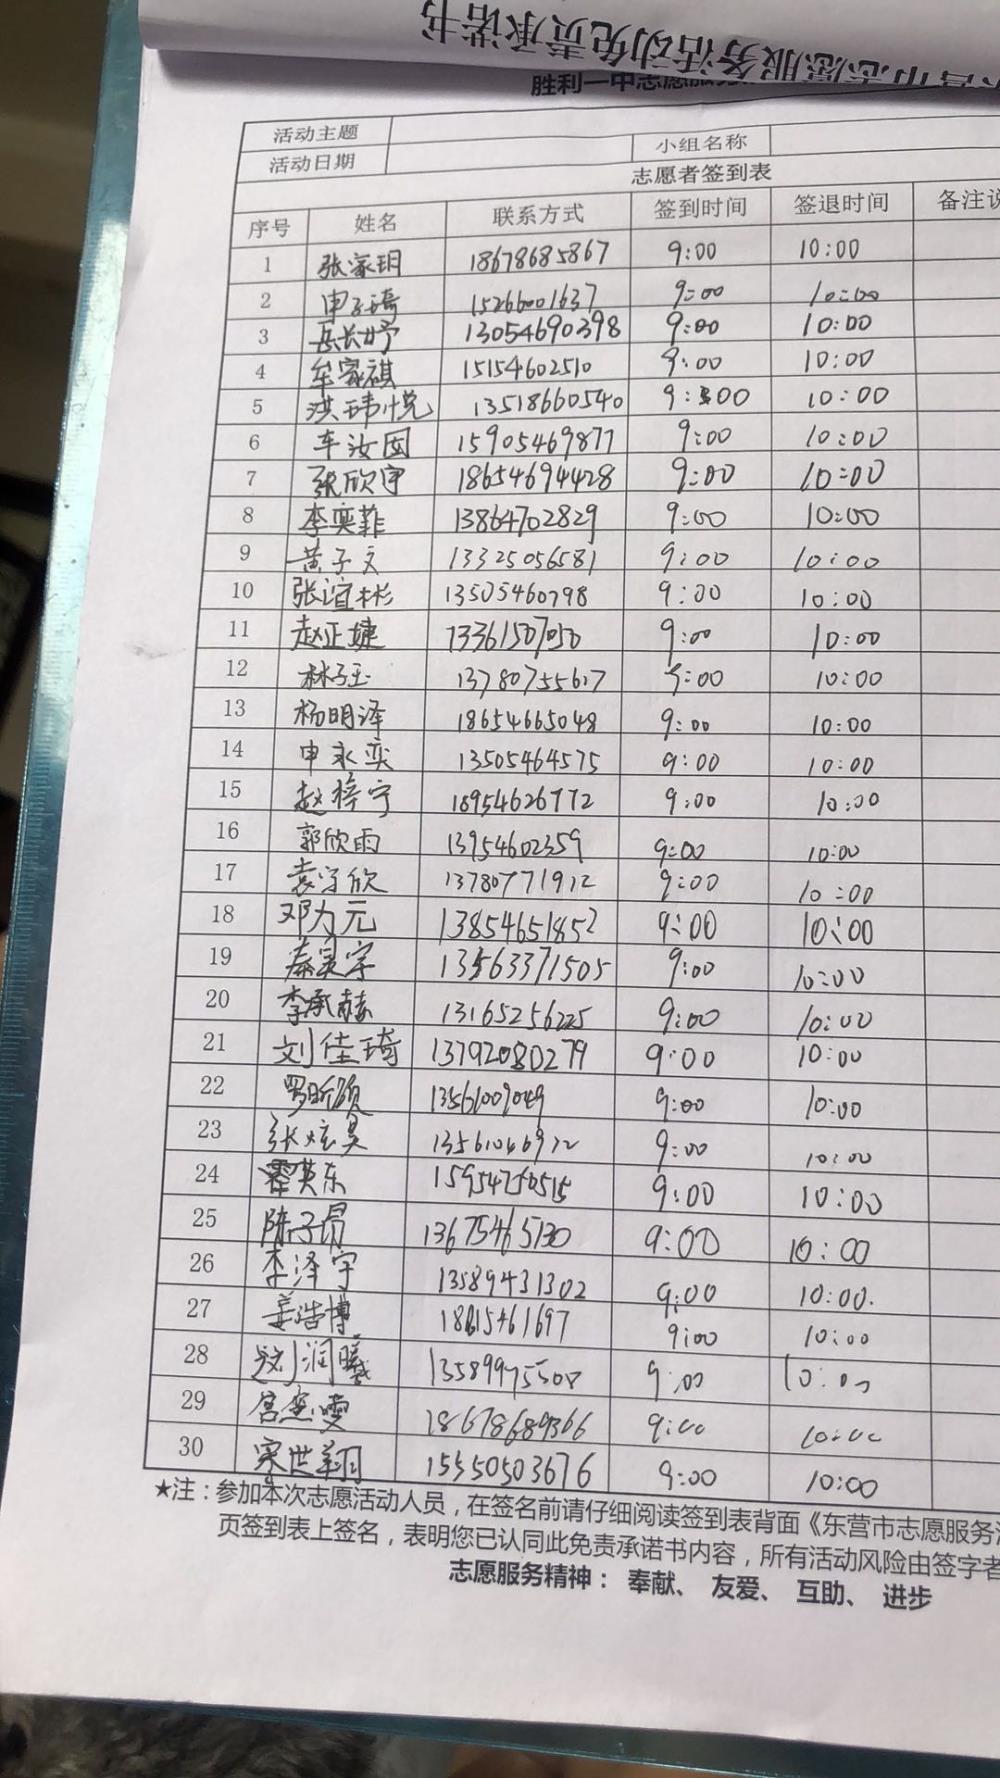 志愿服务活动免责承诺书
胜利一中志愿服
活动主题
活动日期 小组名称
志愿者签到表
序号 姓名 联系方式 签到时间 签退时间 备注说
1 张家玥 18678685867 9:00 10:00
2 申子琦 15266001637 9:00 10:00
3 岳长妤 13054690398 9:00 10:00
4 牟家祺 15154602510 9:00 10:00
5 洪玮悦 13518660540 9:00 10:00
6 车汝囡 15905469877 9:00 10:00
7 张欣宇 18654694428 9:00 10:00
8 李奕菲 13864702829 9:00 10:00
9 黄子文 13325056581 9:00 10:00
10 张谊彬 13505460798 9:00 10:00
11 赵正婕 13361507050 9:00 10:00
12 林子玉 13780755617 9:00 10:00
13 杨明泽 18654665048 9:00 10:00
14 申永奕 13505464575 9:00 10:00
15 赵梓宁 18954626772 9:00 10:00
16 郭欣雨 13954602359 9:00 10:00
17 袁子欣 13780771912 9:00 10:00
18 邓力元 13854651852 9:00 10:00
19 秦昊宇 13563371505 9:00 10:00
20 李承赫 13165256225 9:00 10:00
21 刘佳琦 13792080279 9:00 10:00
22 13561009049 9:00 10:00
23 张炫昊 13561046912 9:00 10:00
24 霍英东 9:00 10:00
25 陈子昂 13675465130 9:00 10:00
26 李泽宇 13589431302 9:00 10:00.
27 姜浩博 18615461697 9:00 10:00
28 刘润曦 13589975508 9:00 10:00
29 18678689366 9:00 10:00
30 宋世翔 15550503676 9:00 10:00
★注：参加本次志愿活动人员，在签名前请仔细阅读签到表背面《东营市志愿服务活
页签到表上签名，表明您已认同此免责承诺书内容，所有活动风险由签字者
志愿服务精神： 奉献、 友爱、 互助、 进步